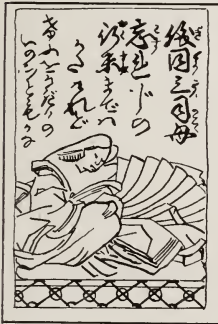 儀同三司母
忘れじの
行末までは
かたければ
けふをかぎりの
いのちともがな